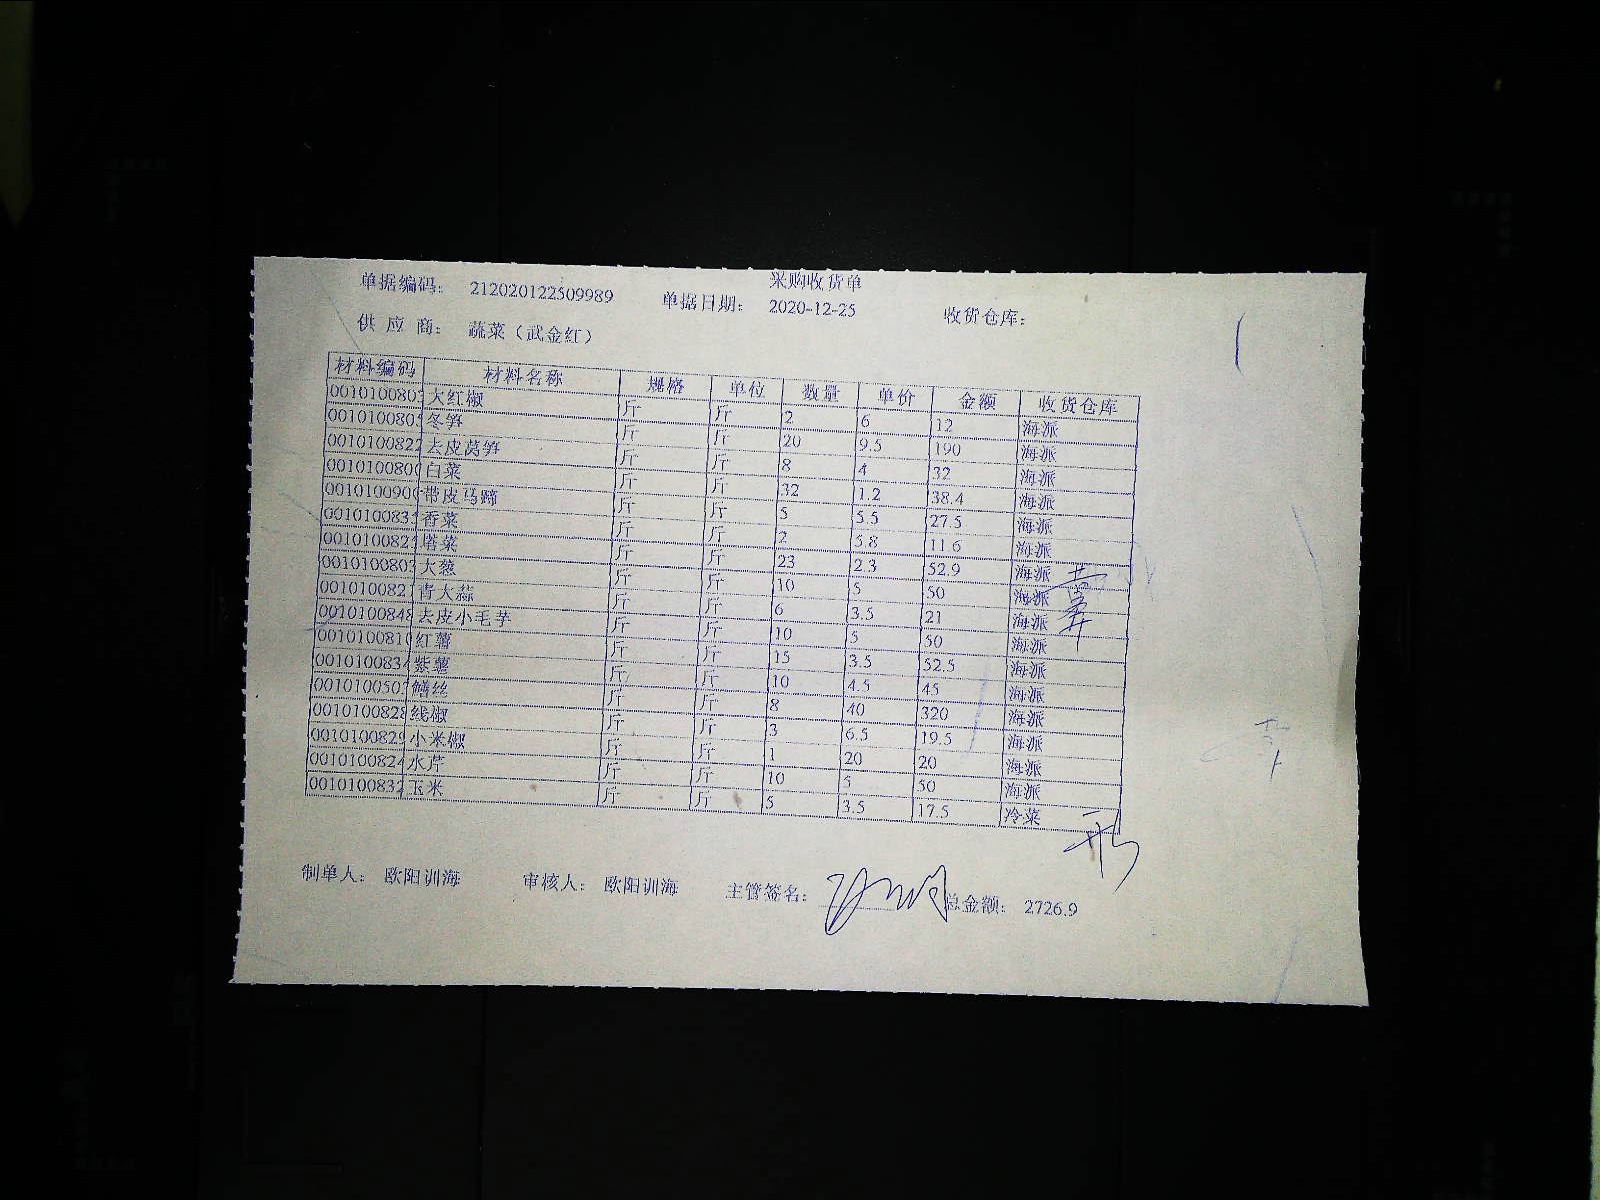 采购收货单
单据编码： 212020122509989 单据日期： 2020-12-25 收货仓库：
供 应 商： 蔬菜（武金红）
材料编码 材料名称 规格 单位 数量 单价 金额 收货仓库
001010080 大红椒 斤 斤 2 6 12 海派
001010080 冬笋 斤 斤 20 9.5 190 海派
001010082 去皮莴笋 斤 斤 8 4 32 海派
001010080 白菜 斤 斤 32 1.2 38.4 海派
001010090 带皮马蹄 斤 斤 5 5.5 27.5 海派
001010083 香菜 斤 斤 2 5.8 11.6 海派
001010082 塔菜 斤 斤 23 2.3 52.9 海派
001010080 大葱 斤 斤 10 5 50 海派
001010082 青大蒜 斤 斤 6 3.5 21 海派
001010084 去皮小毛芋 斤 斤 10 5 50 海派
001010081 红薯 斤 斤 15 3.5 52.5 海派
001010083 紫薯 斤 斤 10 4.5 45 海派
001010050 鳝丝 斤 斤 8 40 320 海派
001010082 线椒 斤 斤 3 6.5 19.5 海派
001010082 小米椒 斤 斤 1 20 20 海派
001010082 水芹 斤 斤 10 5 50 海派
001010083 玉米 斤 斤 5 3.5 17.5 冷菜
制单人： 欧阳训海 审核人： 欧阳训海 主管签名： 总金额： 2726.9